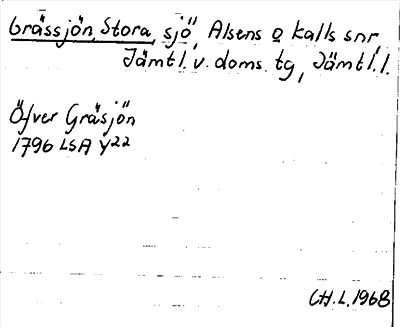 Grässjön, Stora, sjö, Alsens o Kalls snr,
Jämtl. v. doms. tg, Jämtl. l.
Öfver Gräsjön
1796 LSA Y22
CH.L. 1968